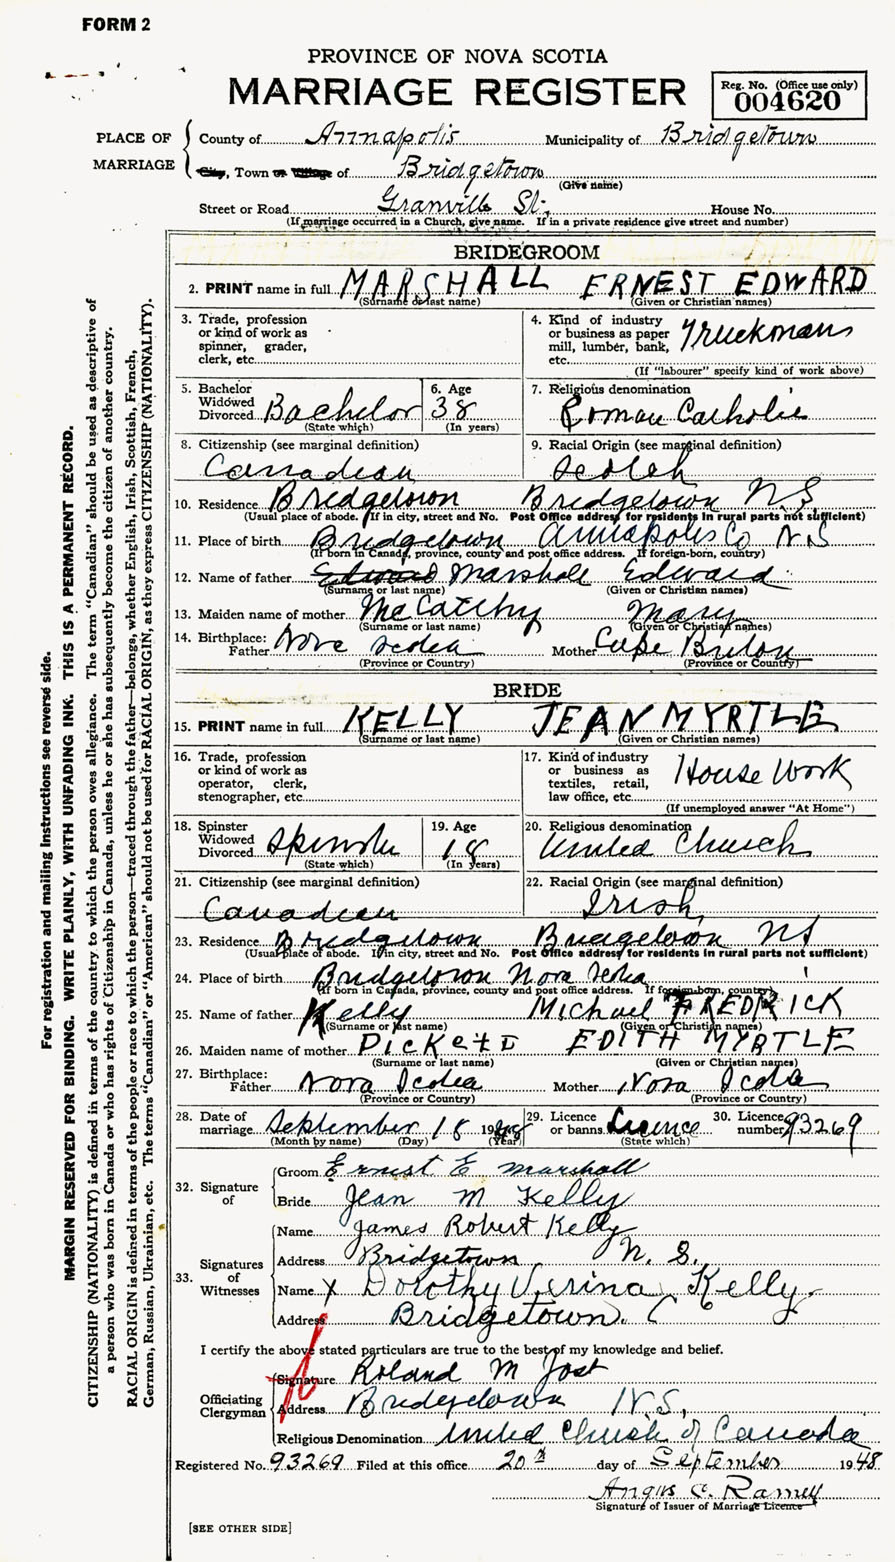 FORM 2
PROVINCE OF NOVA SCOTIA
MARRIAGE REGISTER
Reg. No. (Office use only)
004620
PLACE OF MARRIAGE
County of Annapolis Municipality of Bridgetown
City, Town or Village of Bridgetown
(Give name)
Street or Road Granville St. House No.
(If marriage occurred in a Church, give name. If in a private residence give street and number)
BRIDEGROOM
2. PRINT name in full MARSHALL ERNEST EDWARD
(Surname or last name) (Given or Christian names)
3. Trade, profession
or kind of work as
spinner, grader,
clerk, etc.
4. Kind of industry
or business as paper
mill, lumber, bank,
etc. Truckman
(If "labourer" specify kind of work above)
5. Bachelor
Widowed
Divorced Bachelor
(State which)
6. Age
38
(In years)
7. Religious denomination
Roman Catholic
8. Citizenship (see marginal definition)
Canadian
9. Racial Origin (see marginal definition)
Scotch
10. Residence Bridgetown Bridgetown NS
(Usual place of abode. If in city, street and No. Post Office address for residents in rural parts not sufficient)
11. Place of birth Bridgetown Annapolis Co N.S
(If born in Canada, province, county and post office address. If foreign-born, country)
12. Name of father Edward Marshall Edward
(Surname or last name) (Given or Christian names)
13. Maiden name of mother McCatchy Mary
(Surname or last name) (Given or Christian names)
14. Birthplace:
Father Nova Scotia Mother Cape Breton
(Province or Country) (Province or Country)
BRIDE
15. PRINT name in full KELLY JEAN MYRTLE
(Surname or last name) (Given or Christian names)
16. Trade, profession
or kind of work as
operator, clerk,
stenographer, etc.
17. Kind of industry
or business as
textiles, retail,
law office, etc. House Work
(If unemployed answer "At Home")
18. Spinster
Widowed
Divorced Spinster
(State which)
19. Age
18
(In years)
20. Religious denomination
United Church
21. Citizenship (see marginal definition)
Canadian
22. Racial Origin (see marginal definition)
Irish
23. Residence Bridgetown Bridgetown NS
(Usual place of abode. If in city, street and No. Post Office address for residents in rural parts not sufficient)
24. Place of birth Bridgetown Nova Scotia
(If born in Canada, province, county and post office address. If foreign-born, country)
25. Name of father Kelly Michael FREDRICK
(Surname or last name) (Given or Christian names)
26. Maiden name of mother PICKETT EDITH MYRTLE
(Surname or last name) (Given or Christian names)
27. Birthplace:
Father Nova Scotia Mother Nova Scotia
(Province or Country) (Province or Country)
28. Date of
marriage September 18 1948
(Month by name) (Day) (Year)
29. Licence
or banns Licence
(State which)
30. Licence
number 93269
32. Signature of
Groom Ernest E Marshall
Bride Jean M Kelly
33. Signatures of Witnesses
Name James Robert Kelly
Address Bridgetown N. S.
Name X Dorothy Verina Kelly
Address Bridgetown.
I certify the above stated particulars are true to the best of my knowledge and belief.
Officiating Clergyman
Signature Roland M Jost
Address Bridgetown N.S,
Religious Denomination United Church of Canada
Registered No. 93269 Filed at this office 20th day of September 1948
Angus C. Ramey
Signature of Issuer of Marriage Licence
[SEE OTHER SIDE]
For registration and mailing instructions see reverse side.
MARGIN RESERVED FOR BINDING. WRITE PLAINLY, WITH UNFADING INK. THIS IS A PERMANENT RECORD.
CITIZENSHIP (NATIONALITY) is defined in terms of the country to which the person owes allegiance. The term "Canadian" should be used as descriptive of
a person who was born in Canada or who has rights of Citizenship in Canada, unless he or she has subsequently become the citizen of another country.
RACIAL ORIGIN is defined in terms of the people or race to which the person—traced through the father—belongs, whether English, Irish, Scottish, French,
German, Russian, Ukrainian, etc. The terms "Canadian" or "American" should not be used for RACIAL ORIGIN, as they express CITIZENSHIP (NATIONALITY).